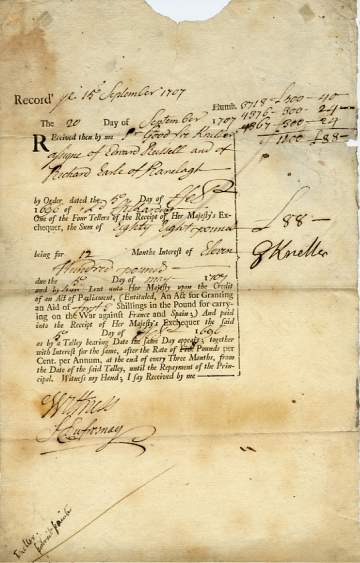 Record' ye 15o September 1707
Numb. 3718 - £500 - 40
4876 - 300 - 24 -
4867 - 300 - 24
£1100 £88 -
The 20 Day of September 1707
REceived then by me Sr Godfrey Kneller
Assigne of Edward Russell and of
Richard Earle of Ranelagh
by Order dated the 5o Day of
One of the Four Tellers of the Receipt of Her Majesty's Ex-
chequer, the Sum of Eighty Eight pounds
£88 -
being for 12 Months Interest of Eleven
GKneller
Hundred pounds
due the 5o Day of May 1707
Lent unto Her Majesty upon the Credit
of an Act of Parliament, (Entituled, An Act for Granting
an Aid of Shillings in the Pound for carry-
ing on the War against France and Spain;) And paid
into the Receipt of Her Majesty's Exchequer the said
5o Day of
as by a Talley bearing Date the same Day appears; together
with Interest for the same, after the Rate of Pounds per
Cent. per Annum, at the end of every Three Months, from
the Date of the said Talley, until the Repayment of the Prin-
cipal. Witness my Hand; I say Received by me
Witness